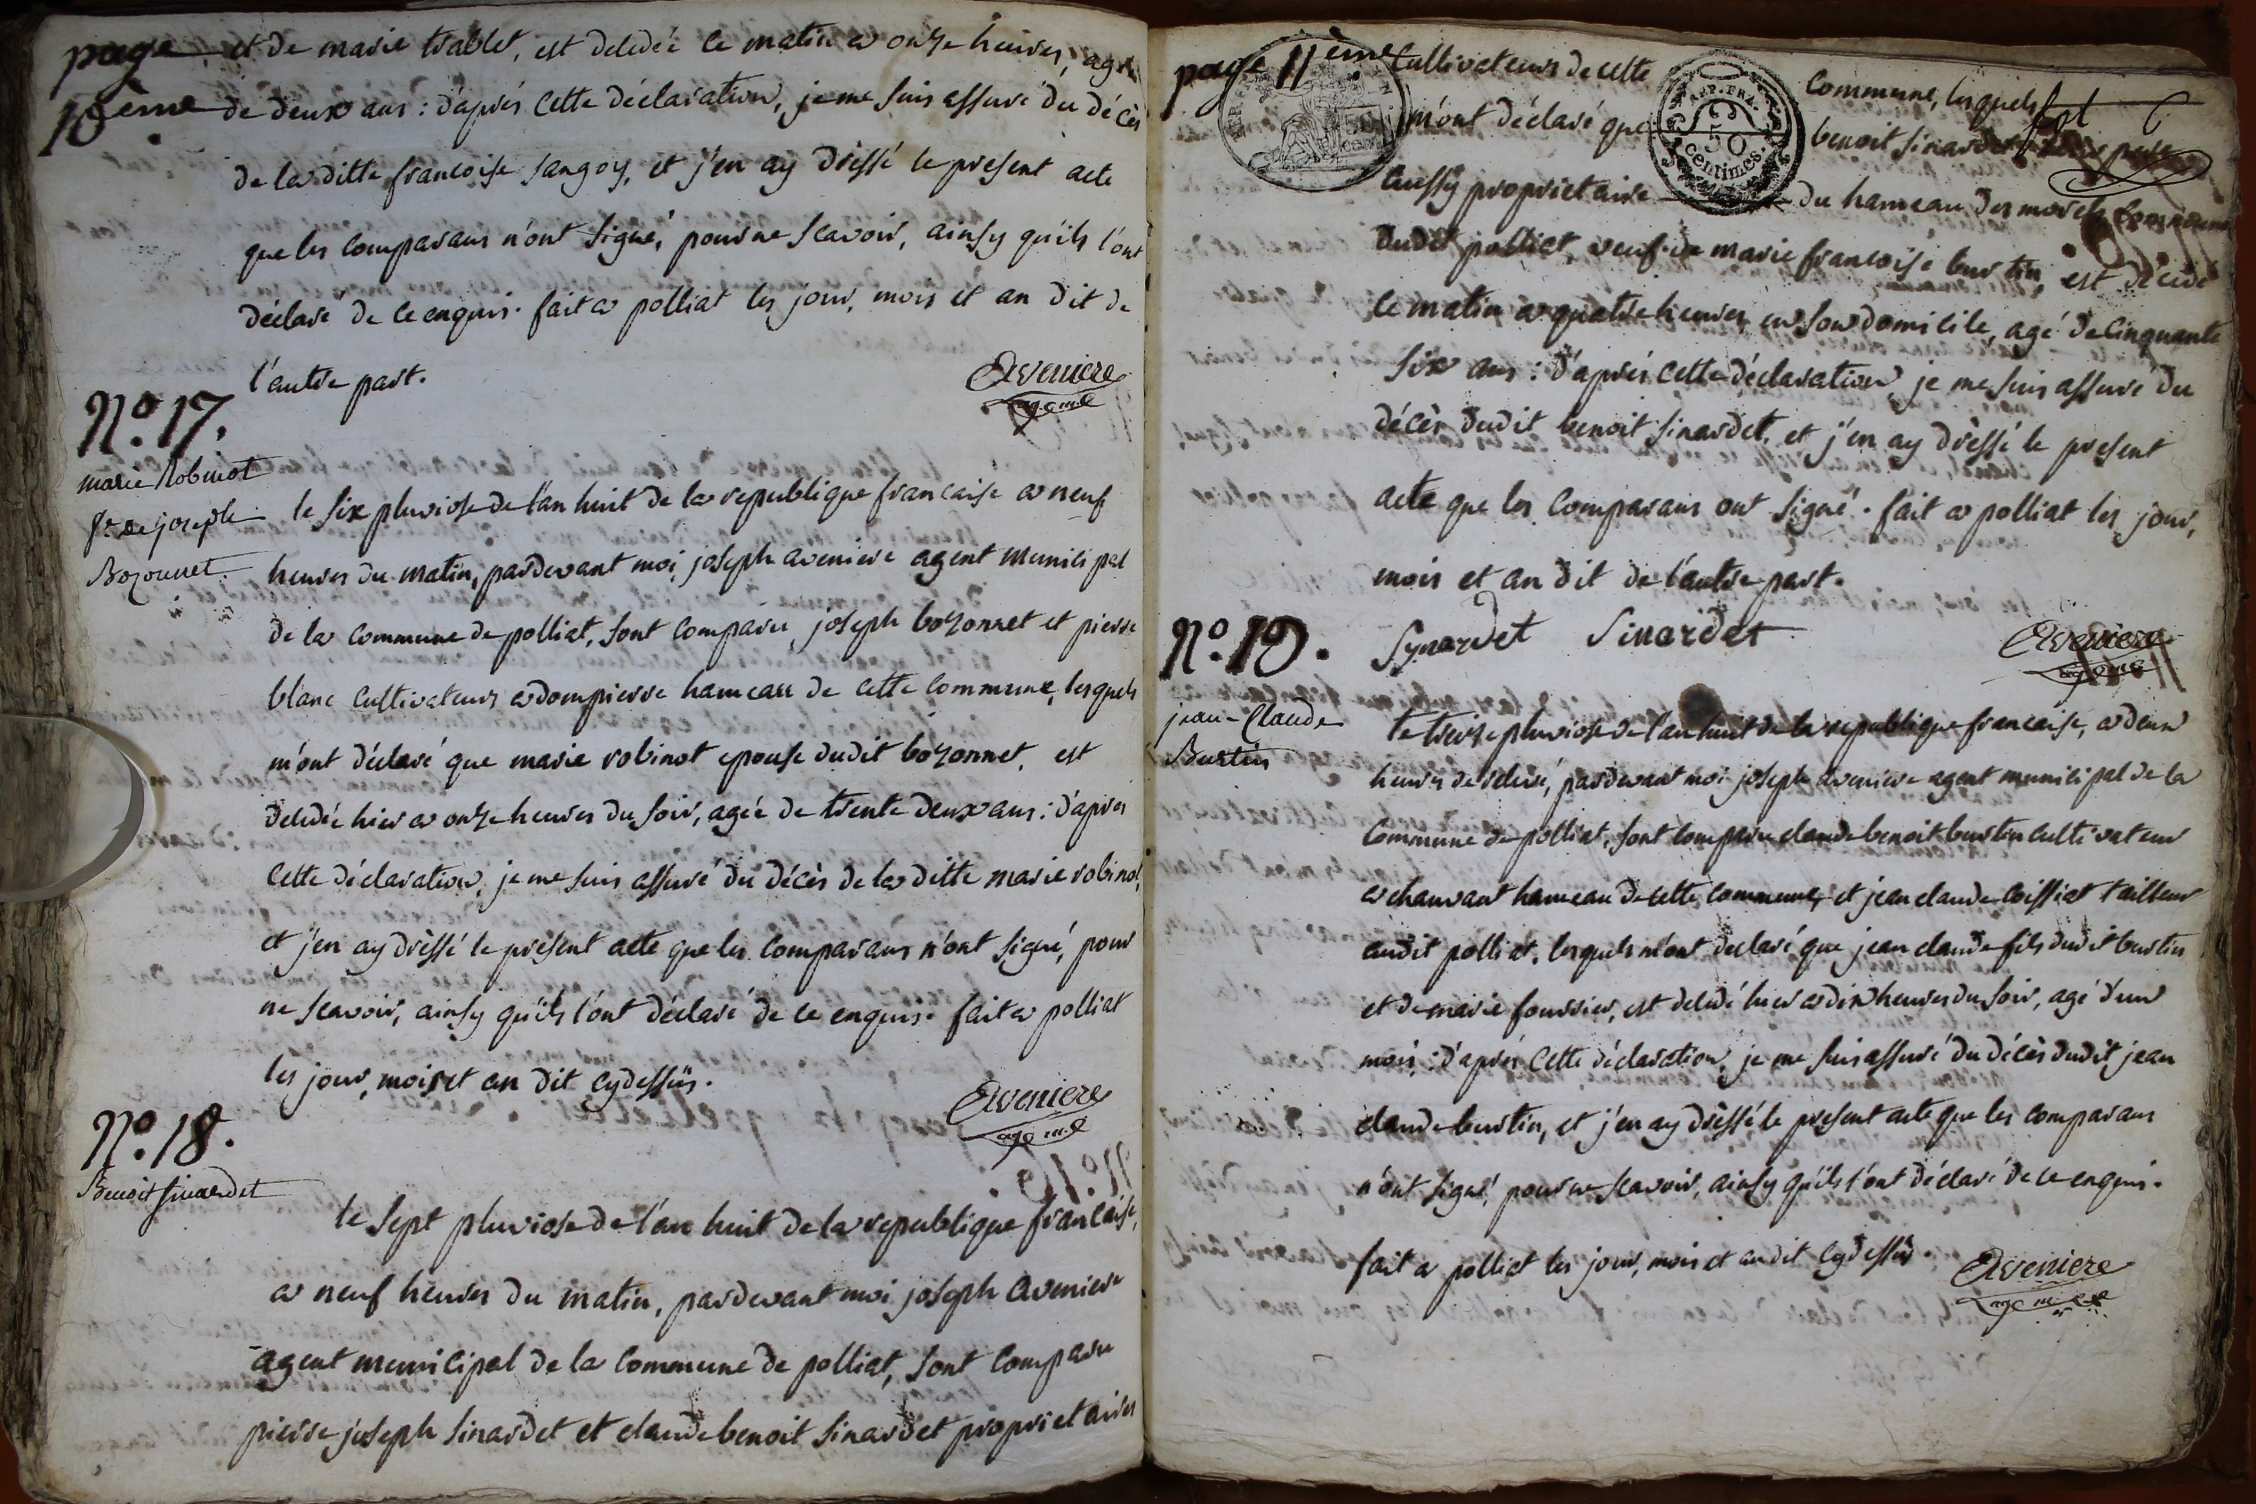 page 10ème
et de marie trablet, est decedée ce matin a onze heures, agée
de deux ans : d'aprés cette déclaration, je me suis assuré du décès
de la ditte francoise sangoy, et j'en ay dressé le present acte
que les comparans n'ont signé, pour ne scavoir, ainsy qu'ils l'ont
déclaré de ce enquis. fait a polliat les jour, mois et an dit de
l'autre part.
Aveniere
age m.l
N.º 17.
marie Robinot
f.e de joseph
Bozonnet.
le six pluviose de l'an huit de la republique francaise a neuf
heures du matin, pardevant moi joseph aveniere agent municipal
de la commune de polliat, sont comparu joseph bozonnet et pierre
blanc cultivateurs a dompierre hameau de cette commune, lesquels
m'ont déclaré que marie robinot epouse dudit bozonnet, est
decedée hier a onze heures du soir, agée de trente deux ans : d'apres
cette déclaration, je me suis assuré du décès de la ditte marie robinot,
et j'en ay dressé le présent acte que les comparans n'ont signé, pour
ne scavoir, ainsy qu'ils l'ont déclaré de ce enquis. fait a polliat
les jour, mois et an dit cydessüs.
Aveniere
age m.l
N.º 18.
Benoit sinardet
le sept pluviose de l'an huit de la republique francaise,
a neuf heures du matin, pardevant moi joseph aveniere
agent municipal de la commune de polliat, sont comparu
pierre joseph sinardet et claude benoit sinardet proprietaires
page 11ème
REP. FRA.
50
centimes.
cultivateurs de cette commune, lesquels
m'ont déclaré que benoit sinardet
aussy proprietaire du hameau des morels commune
dudit polliat, veuf de marie francoise burtin, est décédé
ce matin a quatre heures en son domicile, agé de cinquante
six ans : d'aprés cette déclaration je me suis assuré du
décès dudit benoit sinardet, et j'en ay dressé le present
acte que les comparans ont signé. fait a polliat les jour,
mois et an dit de l'autre part.
Synardet Sinardet
Aveniere
age m.l
N.º 19.
jean-Claude
Burtin
le treize pluviose de l'an huit de la republique francaise, a deux
heures de relevé, pardevant moi joseph aveniere agent municipal de la
commune de polliat, sont comparu claude benoit burtin cultivateur
a chanvant hameau de cette commune, et jean claude coissiat tailleur
audit polliat, lesquels m'ont declaré que jean claude fils dudit burtin
et de marie foursier, est decedé hier a dix heures du soir, agé d'un
mois : d'aprés cette déclaration, je me suis assuré du décès dudit jean
claude burtin, et j'en ay dressé le present acte que les comparans
n'ont signé, pour ne scavoir, ainsy qu'ils l'ont déclaré de ce enquis.
fait a polliat les jour, mois et an dit cydessüs.
Aveniere
age m.l